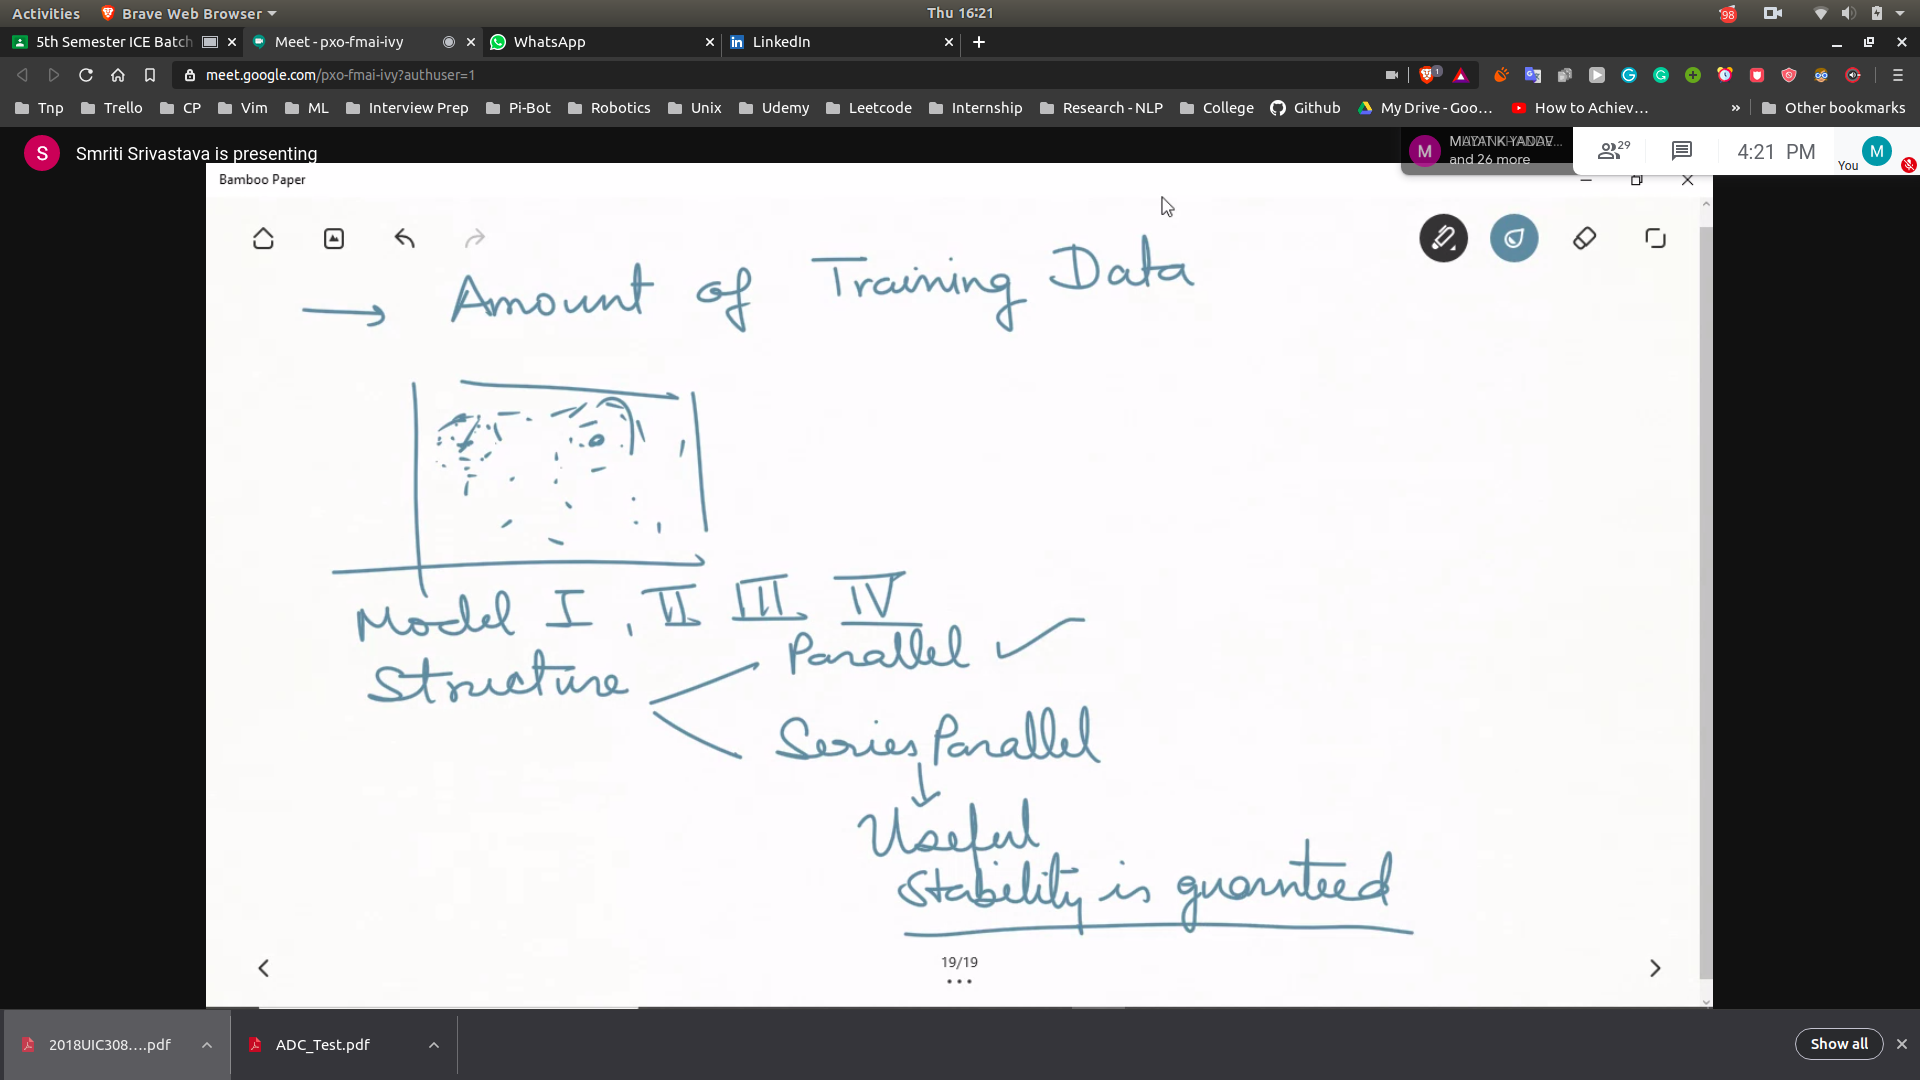 Activities Brave Web Browser Thu 16:21 98
5th Semester ICE Batch Meet - pxo-fmai-ivy WhatsApp LinkedIn
meet.google.com/pxo-fmai-ivy?authuser=1 1
Tnp Trello CP Vim ML Interview Prep Pi-Bot Robotics Unix Udemy Leetcode Internship Research - NLP College Github My Drive - Goo... How to Achiev... » Other bookmarks
S Smriti Srivastava is presenting
M and 26 more 29 4:21 PM You M
Bamboo Paper
→ Amount of Training Data
Model I, II III IV
Structure Parallel ✓
Series Parallel
Useful
Stability is guarnteed
19/19
2018UIC308....pdf ADC_Test.pdf Show all